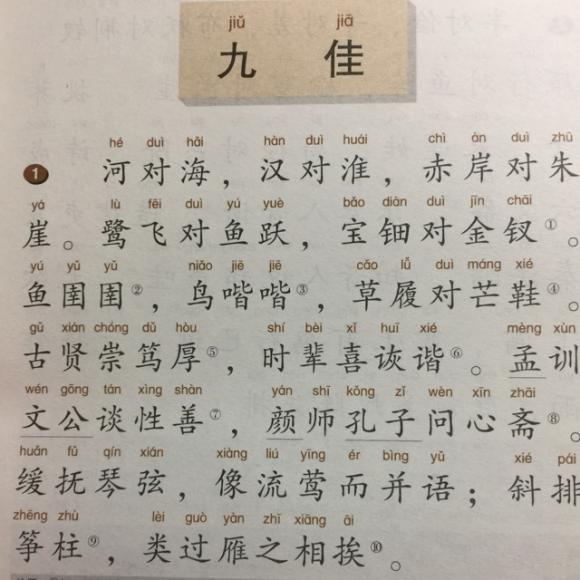 jiǔ jiā
九 佳
hé duì hǎi hàn duì huái chì àn duì zhū
1 河对海，汉对淮，赤岸对朱
yá lù fēi duì yú yuè bǎo diàn duì jīn chāi
崖。鹭飞对鱼跃，宝钿对金钗①。
yú yǔ yǔ niǎo jiē jiē cǎo lǚ duì máng xié
鱼圉圉②，鸟喈喈③，草履对芒鞋④。
gǔ xián chóng dǔ hòu shí bèi xǐ huī xié mèng xùn
古贤崇笃厚⑤，时辈喜诙谐⑥。孟训
wén gōng tán xìng shàn yán shī kǒng zǐ wèn xīn zhāi
文公谈性善⑦，颜师孔子问心斋⑧。
huǎn fǔ qín xián xiàng liú yīng ér bìng yǔ xié pái
缓抚琴弦，像流莺而并语；斜排
zhēng zhù lèi guò yàn zhī xiāng āi
筝柱⑨，类过雁之相挨⑩。